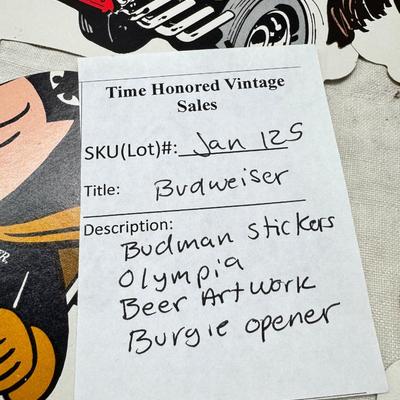 Time Honored Vintage
Sales
SKU(Lot)#: Jan 125
Title: Budweiser
Description:
Budman stickers
Olympia
Beer Artwork
Burgie opener